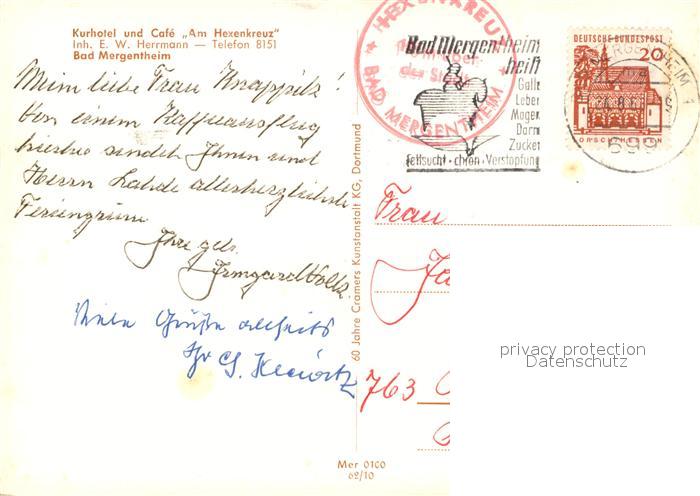 Kurhotel und Café „Am Hexenkreuz"
Inh. E. W. Herrmann — Telefon 8151
Bad Mergentheim
Mein liebe Frau Knappitz!
Von einem Kaffeeausflug
hierher sendet Ihnen und
Herrn allerherzlichste
Feriengrüsse
Ihre
Irmgard
Viele Grüße allseits
Ihr G.
60 Jahre Cramers Kunstanstalt KG, Dortmund
Mer 0100
62/10
HEXENKREUZ
BAD MERGENTHEIM
Bad Mergentheim
heilt
Galle
Leber
Magen
Darm
Zucker
Fettsucht · chron · Verstopfung
DEUTSCHE BUNDESPOST
20
LORSCH HESSEN
MERGENTHEIM 1
699
Frau
763
privacy protection
Datenschutz